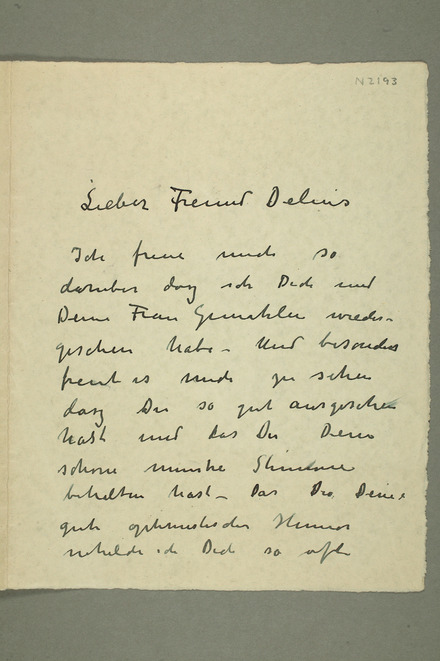 N 2193
Lieber Freund Delius
Ich freue mich so
darüber daß ich Dich und
Deine Frau Gemahlin wieder-
gesehen habe – Und besonders
freut es mich zu sehen
dasz Du so gut ausgesehen
hast und das Du Deine
schöne Stimme
behalten hast – Das Du Deine
gute optimistischer Humor
ich Dich so oft